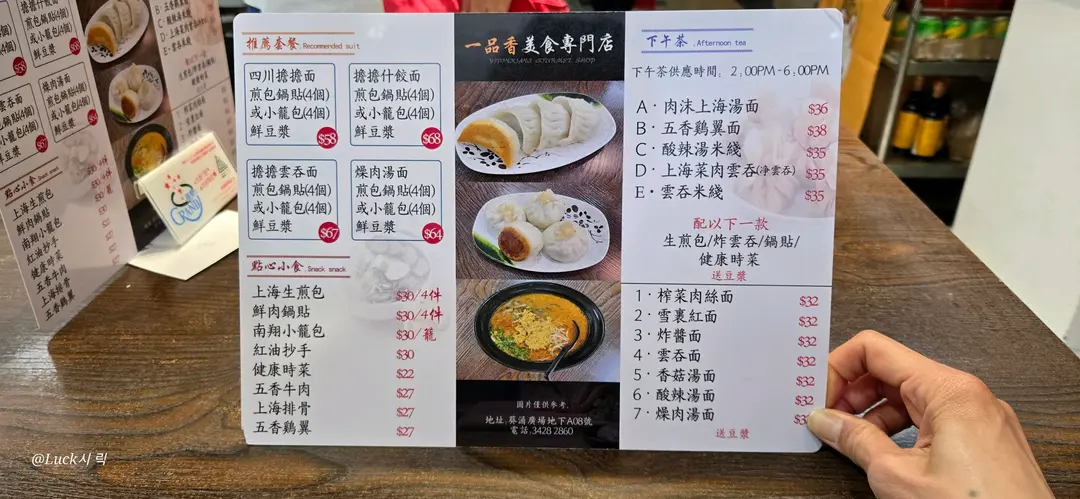 推薦套餐 .Recommended suit
四川擔擔面
煎包鍋貼(4個)
或小籠包(4個)
鮮豆漿
$58
擔擔什餃面
煎包鍋貼(4個)
或小籠包(4個)
鮮豆漿
$68
擔擔雲吞面
煎包鍋貼(4個)
或小籠包(4個)
鮮豆漿
$67
燥肉湯面
煎包鍋貼(4個)
或小籠包(4個)
鮮豆漿
$64
點心小食 .Snack snack
上海生煎包 $30/4件
鮮肉鍋貼 $30/4件
南翔小籠包 $30/籠
紅油抄手 $30
健康時菜 $22
五香牛肉 $27
上海排骨 $27
五香鷄翼 $27
一品香美食專門店
圖片僅供參考.
地址.葵涌廣場地下A08號
電話.3428 2860
下午茶 .Afternoon tea
下午茶供應時間: 2:00PM-6:00PM
A·肉沫上海湯面 $36
B·五香鷄翼面 $38
C·酸辣湯米綫 $35
D·上海菜肉雲吞(净雲吞) $35
E·雲吞米綫 $35
配以下一款
生煎包/炸雲吞/鍋貼/
健康時菜
送豆漿
1·榨菜肉絲面 $32
2·雪裏紅面 $32
3·炸醬面 $32
4·雲吞面 $32
5·香菇湯面 $32
6·酸辣湯面 $32
7·燥肉湯面
送豆漿
@Luck시릭